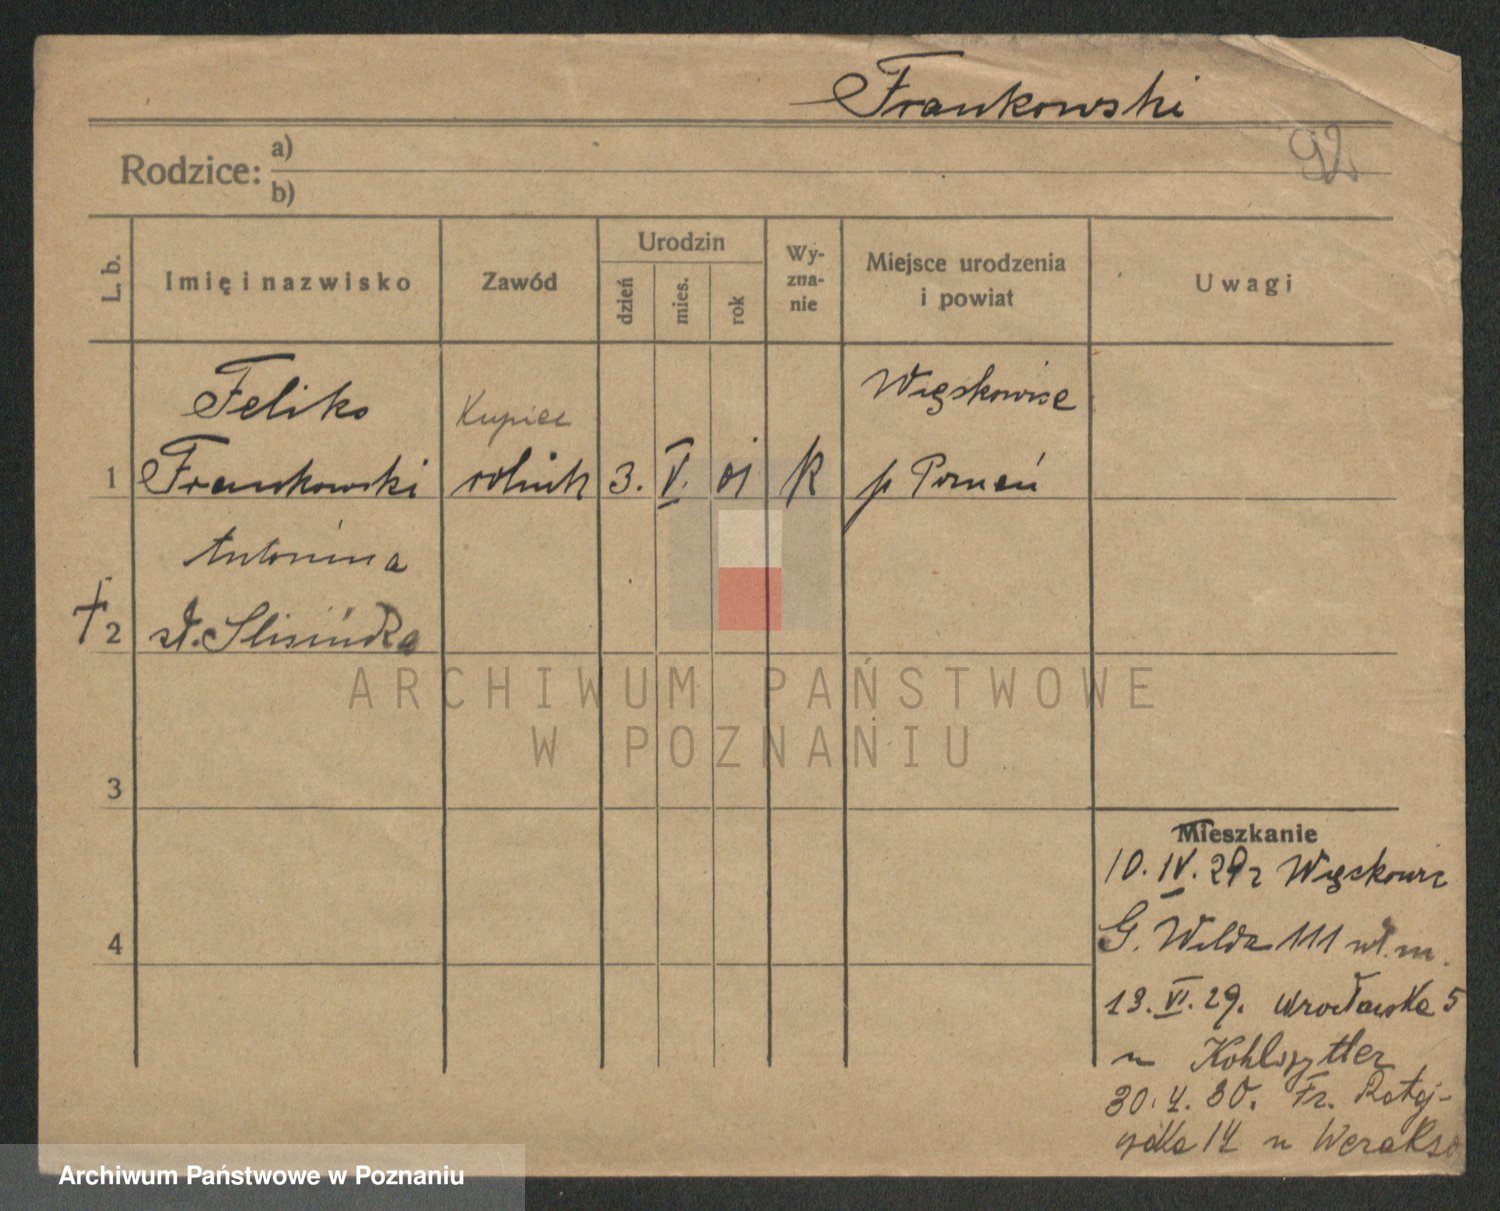 Frankowski
92
Rodzice: a)
b)
L. b.
Imię i nazwisko
Zawód
Urodzin
dzień
mies.
rok
Wy-
zna-
nie
Miejsce urodzenia
i powiat
Uwagi
Feliks
Kupiec
Więskowice
1 Frankowski rolnik 3. V. 01 k p Poznań
Antonina
† 2 zł. Slisińska
ARCHIWUM PAŃSTWOWE
W POZNANIU
3
Mieszkanie
10. IV. 29 z Więckowic
4
G. Wilda 111 wł. m.
13. VI. 29. Wrocławska 5
u
30. 4. 30. Fr. Rataj-
14 u
Archiwum Państwowe w Poznaniu